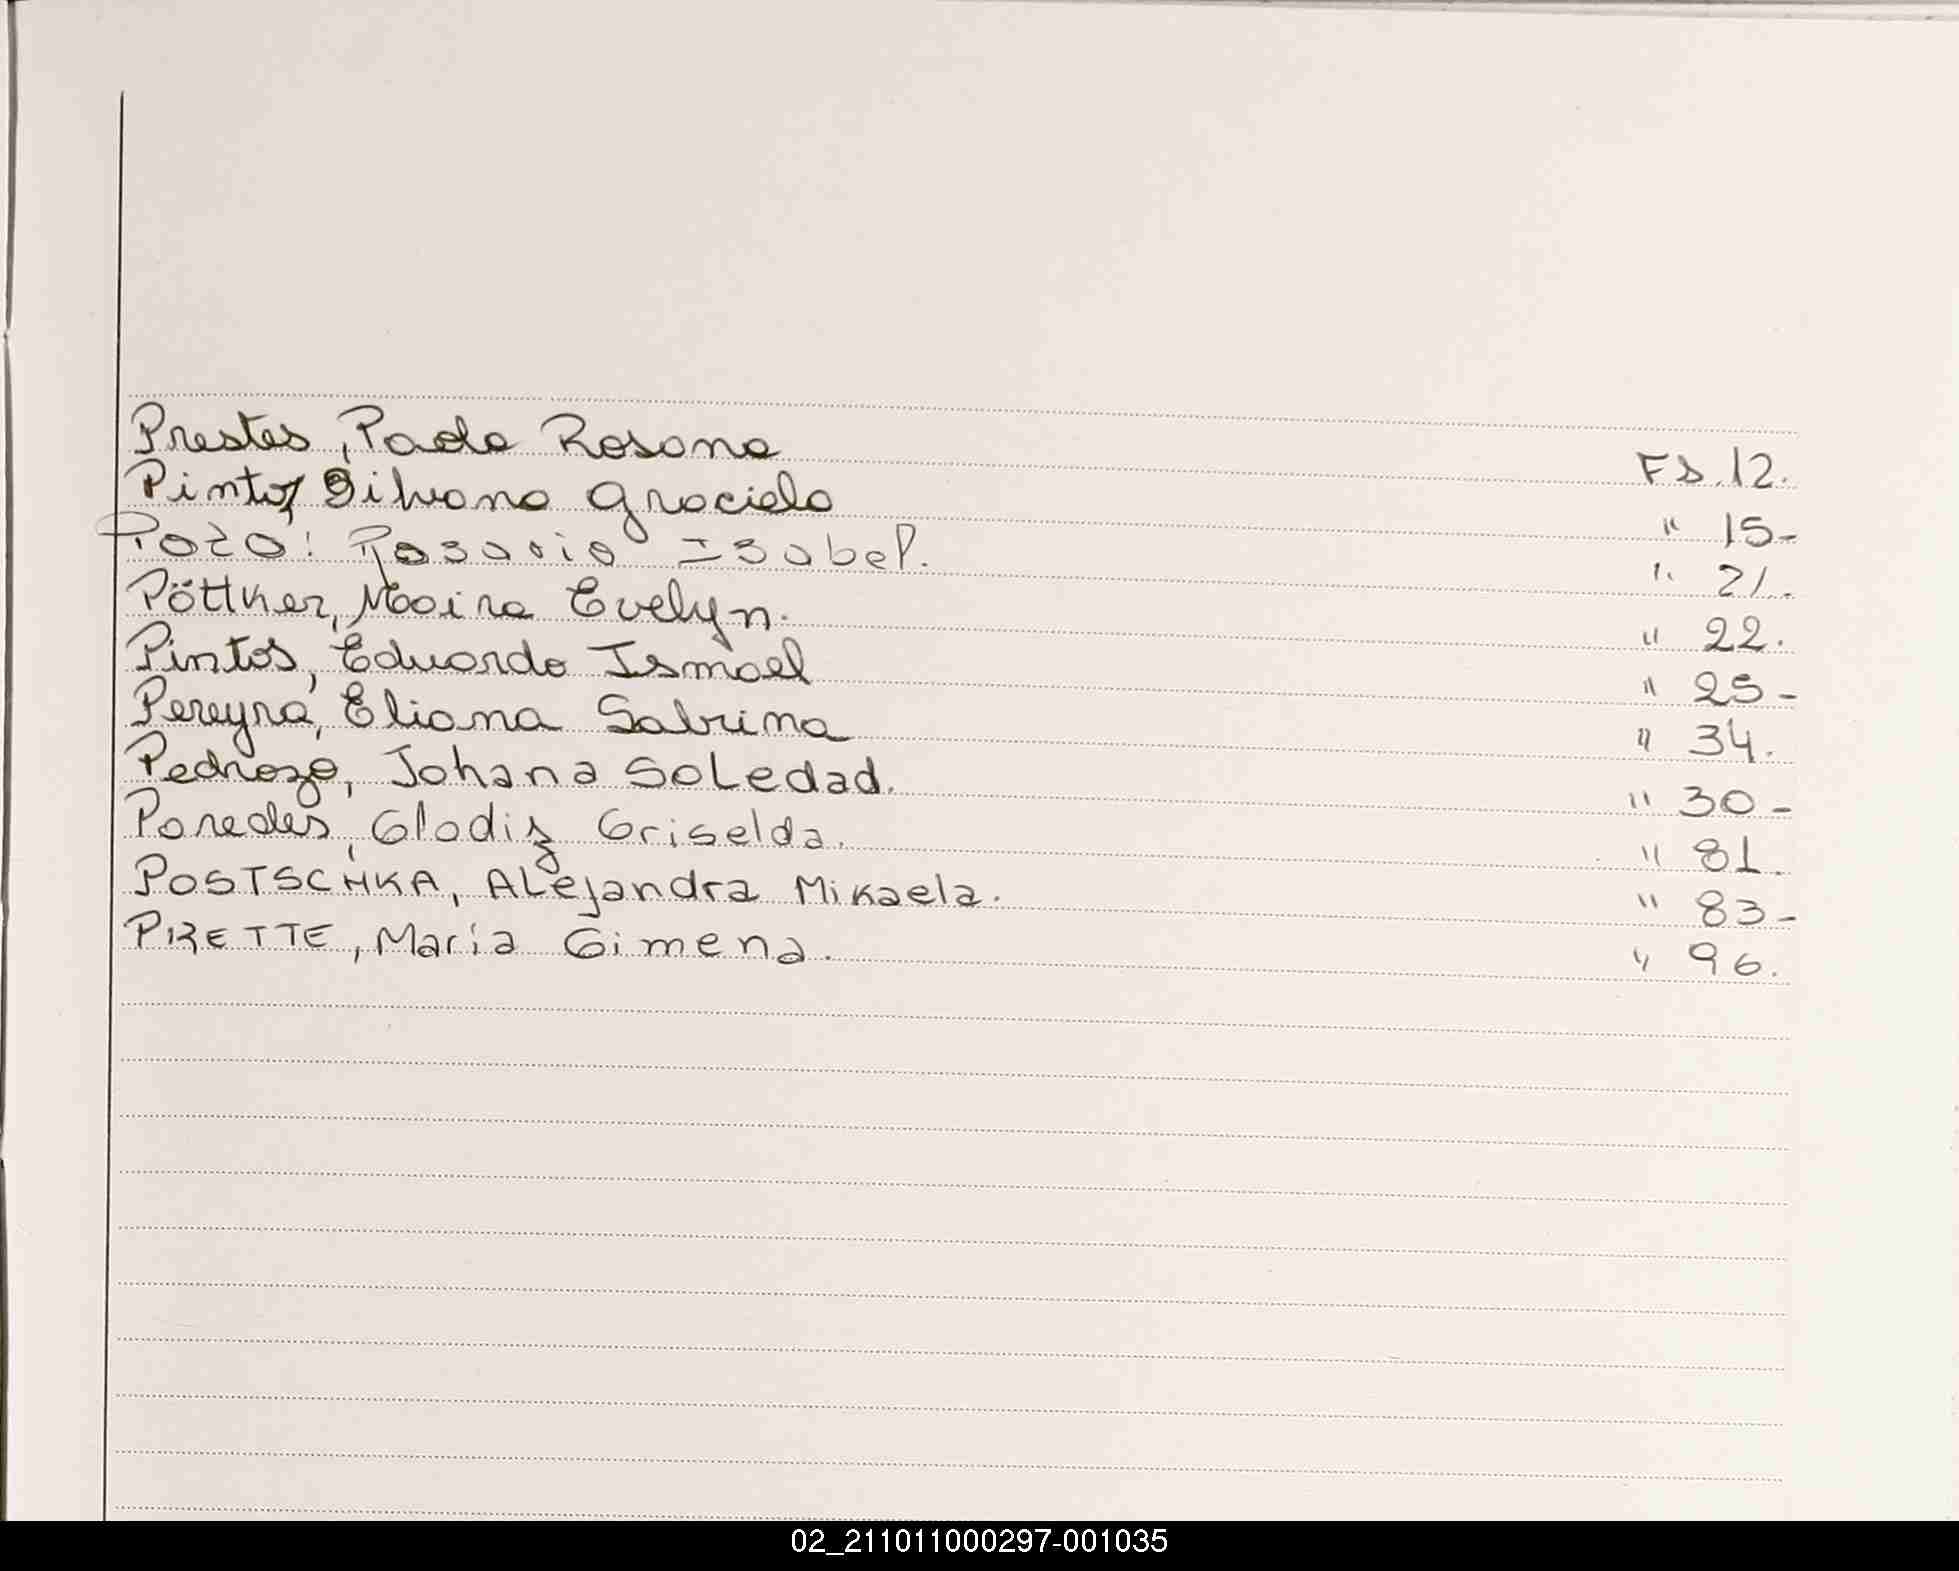 Prestes, Paola Rosana FS. 12.
Pinto, Silvana Graciela " 15-
Pozo: Rosario Isabel. " 21.-
Pöttker, Moira Evelyn. " 22.
Pintos, Eduardo Ismael " 25-
Pereyra, Eliana Sabrina " 34.
Pedrozo, Johana Soledad. " 30-
Paredes, Gladiz Griselda. " 81.
POSTSCHKA, Alejandra Mikaela. " 83-
PIRETTE, María Gimena. " 96.
02_211011000297-001035